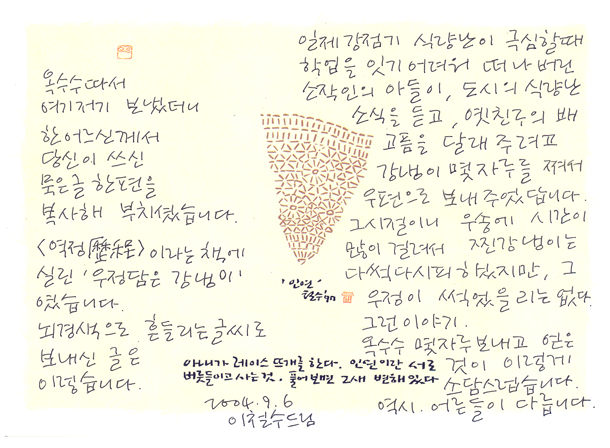 옥수수 따서
여기저기 보냈더니
한 어르신께서
당신이 쓰신
묵은 글 한편을
복사해 부치셨습니다.
<역정歷程>이라는 책에
실린 '우정담은 강냉이'
였습니다.
뇌경색으로 흔들리는 글씨로
보내신 글은
이렇습니다.
일제강점기 식량난이 극심할때
학업을 잇기 어려워 떠나버린
소작인의 아들이, 도시의 식량난
소식을 듣고, 옛친구의 배
고픔을 달래 주려고
강냉이 몇자루를 쪄서
우편으로 보내 주었답니다.
그시절이니 우송에 시간이
많이 걸려서 찐강냉이는
다 썩다시피 하였지만, 그
우정이 썩었을 리는 없다.
그런 이야기.
옥수수 몇자루 보내고 얻은
것이 이렇게
소담스럽습니다.
역시. 어른들이 다릅니다.
'인연'
철수 '90
아내가 레이스 뜨개를 한다. 인연이란 서로
버릇들이고 사는 것. 풀어보면 그새 변해 있다
2004.9.6
이철수드림